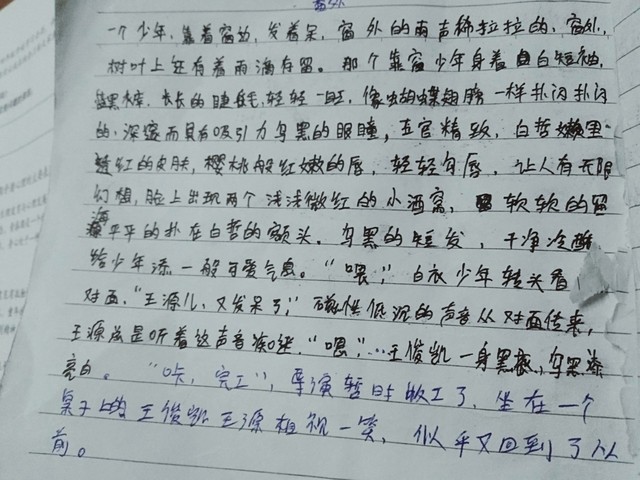 窗外
一个少年,靠着窗边,发着呆,窗外的雨声稀拉拉的,窗外,
树叶上还有着雨滴存留。那个靠窗少年身着白短袖,
黑裤,长长的睫毛,轻轻一眨,像蝴蝶翅膀一样扑闪扑闪
的,深邃而具有吸引力乌黑的眼瞳,五官精致,白哲嫩里
透红的皮肤,樱桃般红嫩的唇,轻轻勾唇,让人有无限
幻想,脸上出现两个浅浅微红的小酒窝,软软的留
海平平的扑在白哲的额头。乌黑的短发,干净冷酷
给少年添一般可爱气息。“喂,”白衣少年转头看
对面,“王源儿,又发呆了,”磁性低沉的声音从对面传来,
王源总是听着这声音凑迷,“喂,”…王俊凯一身黑,乌黑
亮白。“咔,完工”,导演暂时收工了,坐在一个
桌子上的王俊凯王源相视一笑,似乎又回到了以
前。